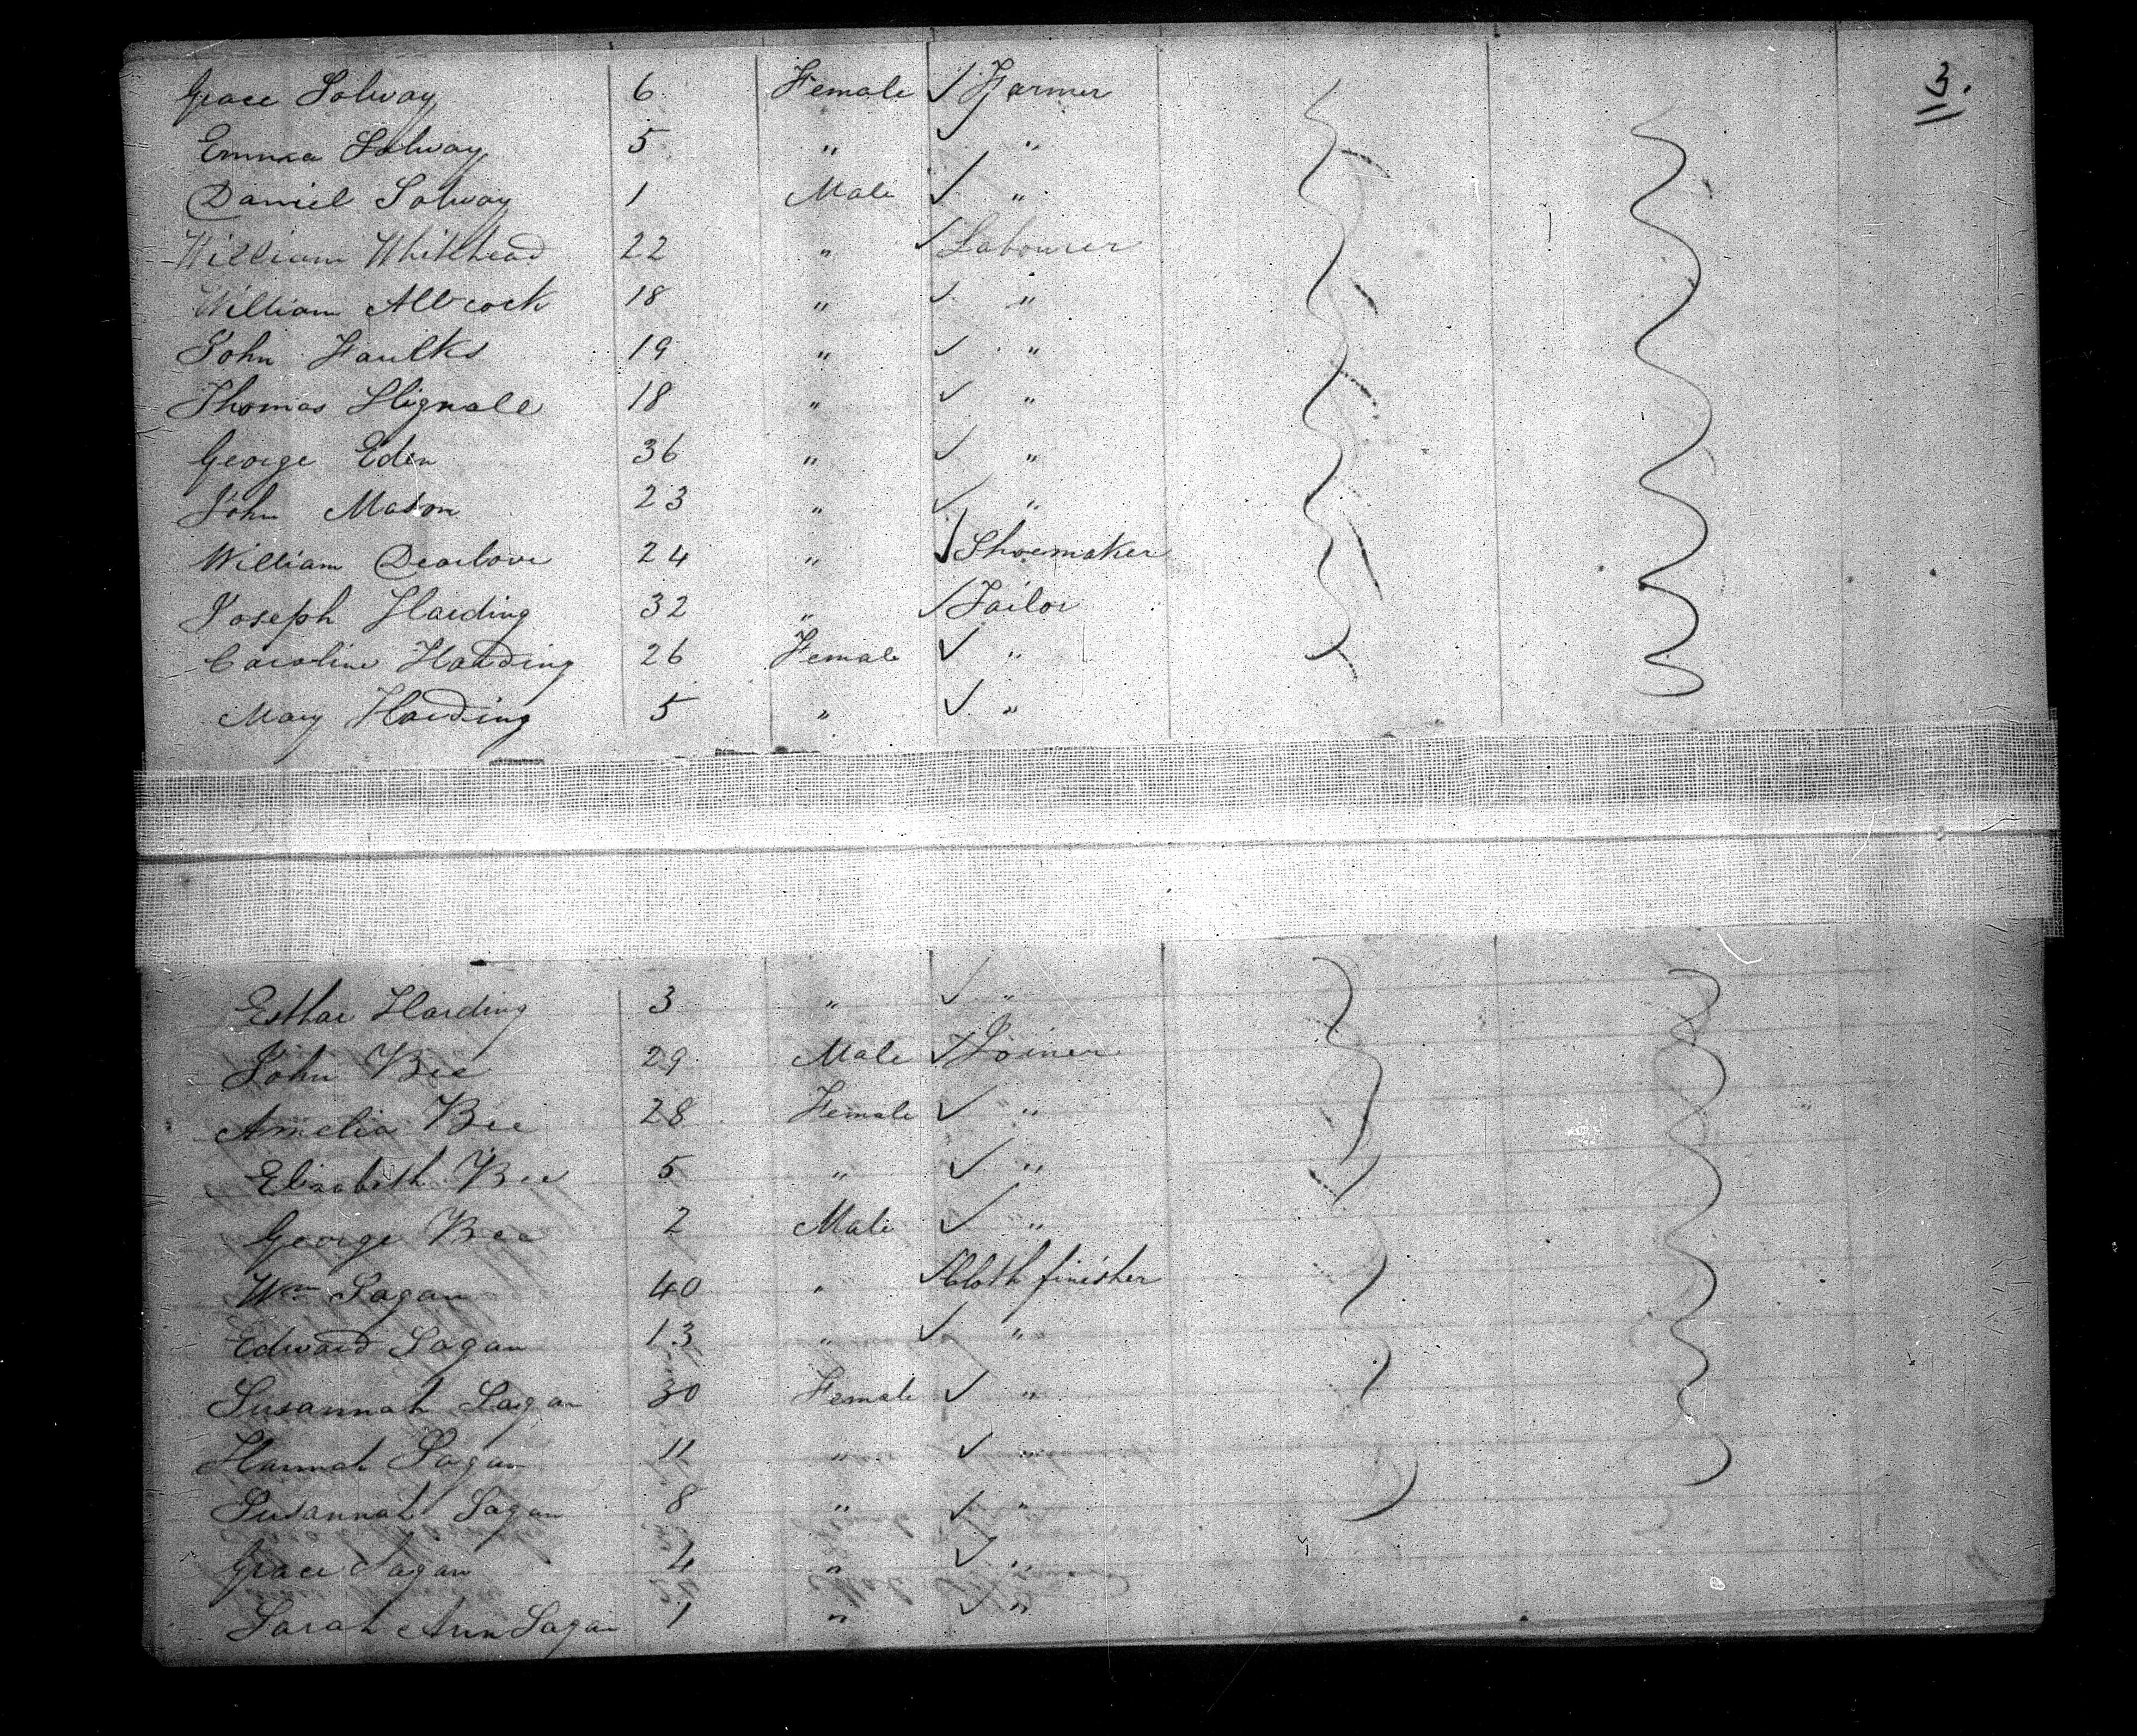 3.
Grace Solway 6 Female ✓ Farmer
Emma Solway 5 " ✓ "
Daniel Solway 1 Male ✓ "
William Whitehead 22 " ✓ Labourer
William Allcock 18 " ✓ "
John Faulks 19 " ✓ "
Thomas Hignall 18 " ✓ "
George Eden 36 " ✓ "
John Mason 23 " ✓ "
William Dearlove 24 " ✓ Shoemaker
Joseph Harding 32 " ✓ Tailor
Caroline Harding 26 Female ✓ "
Mary Harding 5 " ✓ "
Esthar Harding 3 " ✓ "
John Bee 29 Male ✓ Joiner
Amelia Bee 28 Female ✓ "
Elizabeth Bee 5 " ✓ "
George Bee 2 Male ✓ "
Wm Sagan 40 " ✓ Cloth finisher
Edward Sagan 13 " ✓ "
Susannah Sagan 30 Female ✓ "
Hannah Sagan 11 " ✓ "
Susannah Sagan 8 " ✓ "
Grace Sagan 4 " ✓ "
Sarah Ann Sagan 1 " ✓ "